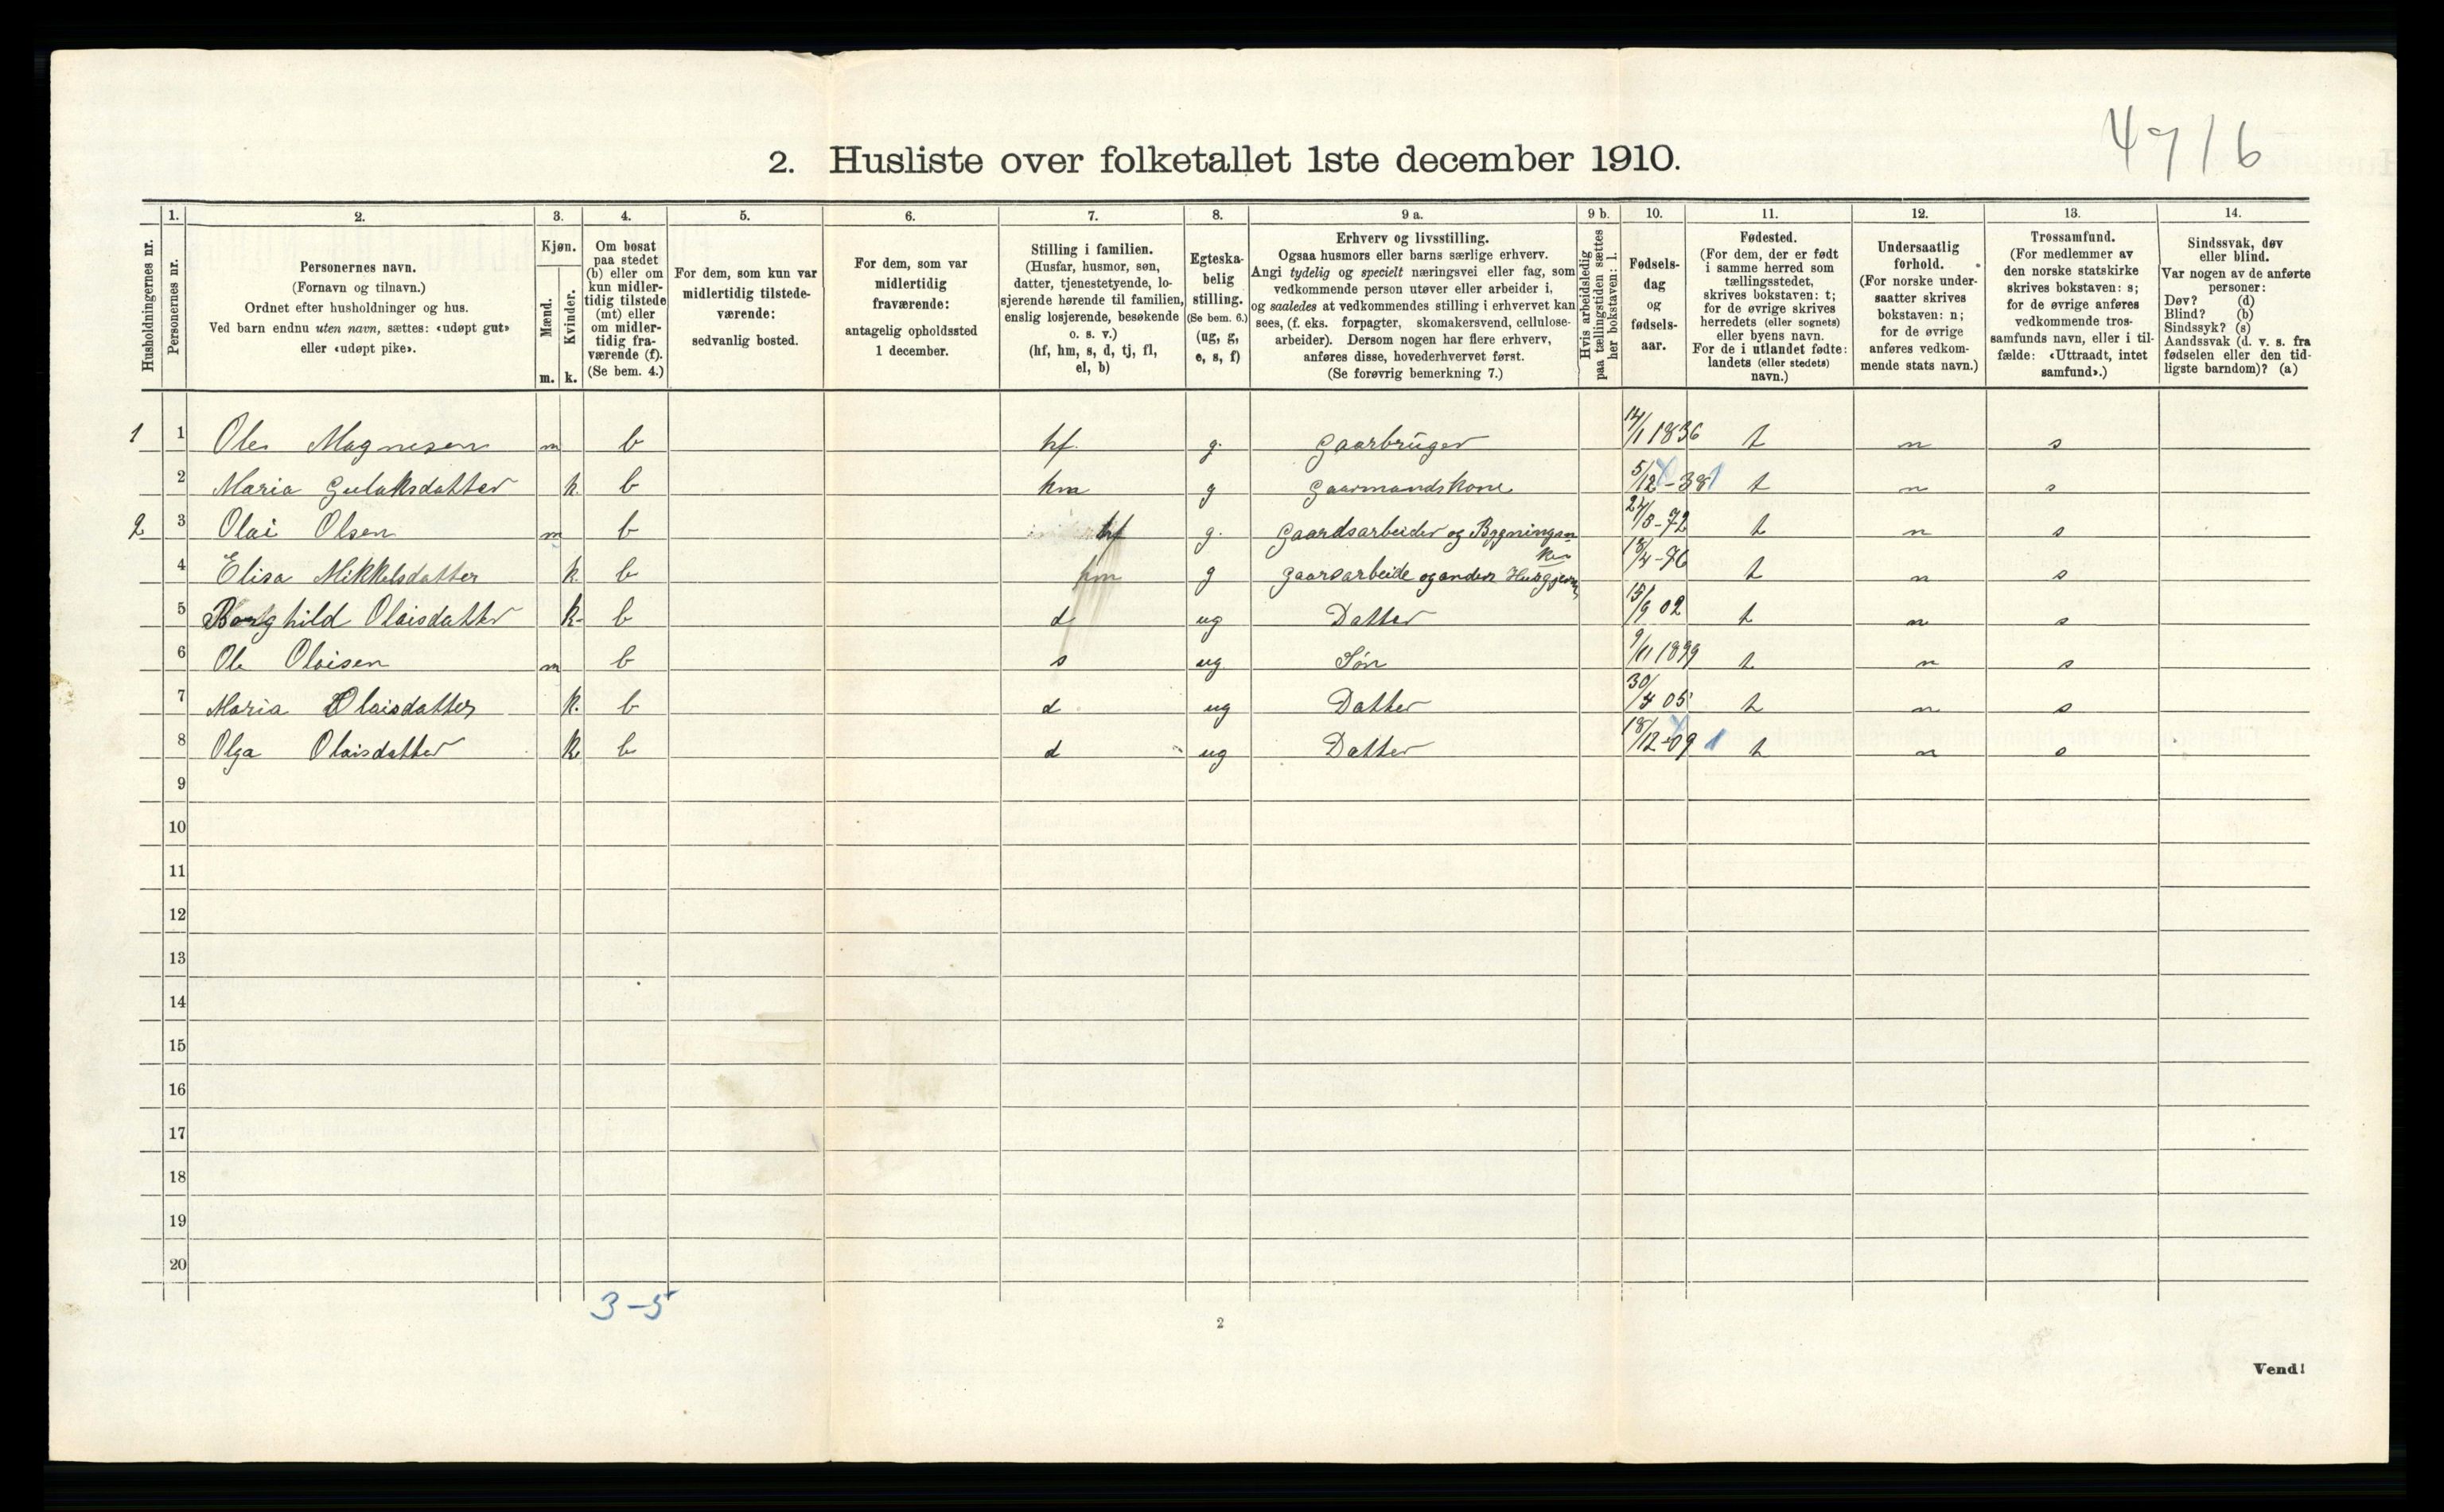 4916
2. Husliste over folketallet 1ste december 1910.
Husholdningernes nr.
1.
Personernes nr.
2.
Personernes navn.
(Fornavn og tilnavn.)
Ordnet efter husholdninger og hus.
Ved barn endnu uten navn, sættes: «udøpt gut»
eller «udøpt pike».
3.
Kjøn.
Mænd.
Kvinder.
m. k.
4.
Om bosat
paa stedet
(b) eller om
kun midler-
tidig tilstede
(mt) eller
om midler-
tidig fra-
værende (f).
(Se bem. 4.)
5.
For dem, som kun var
midlertidig tilstede-
værende:
sedvanlig bosted.
6.
For dem, som var
midlertidig
fraværende:
antagelig opholdssted
1 december.
7.
Stilling i familien.
(Husfar, husmor, søn,
datter, tjenestetyende, lo-
sjerende hørende til familien,
enslig losjerende, besøkende
o. s. v.)
(hf, hm, s, d, tj, fl,
el, b)
8.
Egteska-
belig
stilling.
(Se bem. 6.)
(ug, g,
e, s, f)
9 a.
Erhverv og livsstilling.
Ogsaa husmors eller barns særlige erhverv.
Angi tydelig og specielt næringsvei eller fag, som
vedkommende person utøver eller arbeider i,
og saaledes at vedkommendes stilling i erhvervet kan
sees, (f. eks. forpagter, skomakersvend, cellulose-
arbeider). Dersom nogen har flere erhverv,
anføres disse, hovederhvervet først.
(Se forøvrig bemerkning 7.)
9 b.
Hvis arbeidsledig
paa tællingstiden sættes
her bokstaven: l.
10.
Fødsels-
dag
og
fødsels-
aar.
11.
Fødested.
(For dem, der er født
i samme herred som
tællingsstedet,
skrives bokstaven: t;
for de øvrige skrives
herredets (eller sognets)
eller byens navn.
For de i utlandet fødte:
landets (eller stedets)
navn.)
12.
Undersaatlig
forhold.
(For norske under-
saatter skrives
bokstaven: n;
for de øvrige
anføres vedkom-
mende stats navn.)
13.
Trossamfund.
(For medlemmer av
den norske statskirke
skrives bokstaven: s;
for de øvrige anføres
vedkommende tros-
samfunds navn, eller i til-
fælde: «Uttraadt, intet
samfund».)
14.
Sindssvak, døv
eller blind.
Var nogen av de anførte
personer:
Døv? (d)
Blind? (b)
Sindssyk? (s)
Aandssvak (d. v. s. fra
fødselen eller den tid-
ligste barndom)? (a)
1 1 Ole Magnesen m b hf. g. Gaarbruger 14/1 1836 t n s
2 Maria Gulaksdatter k. b hm g Gaarmandskone 5/12-38 1 t n s
2 3 Olai Olsen m b hf g. Gaardsarbeider og Bygningsn 24/5-72 t n s
4 Elisa Mikkelsdatter k. b hm g Gaarsarbeide og anden Husgjern 18/4-76 t n s
5 Borghild Olaisdatter k. b d ug Datter 15/9 02 t n s
6 Ole Olaisen m b s ug Søn 9/11 1899 t n s
7 Maria Olaisdatter k. b d ug Datter 30/4 05 t n s
8 Olga Olaisdatter k b d ug Datter 18/12-09 1 t n s
9
10
11
12
13
14
15
16
17
18
19
20
3-5
2
Vend!